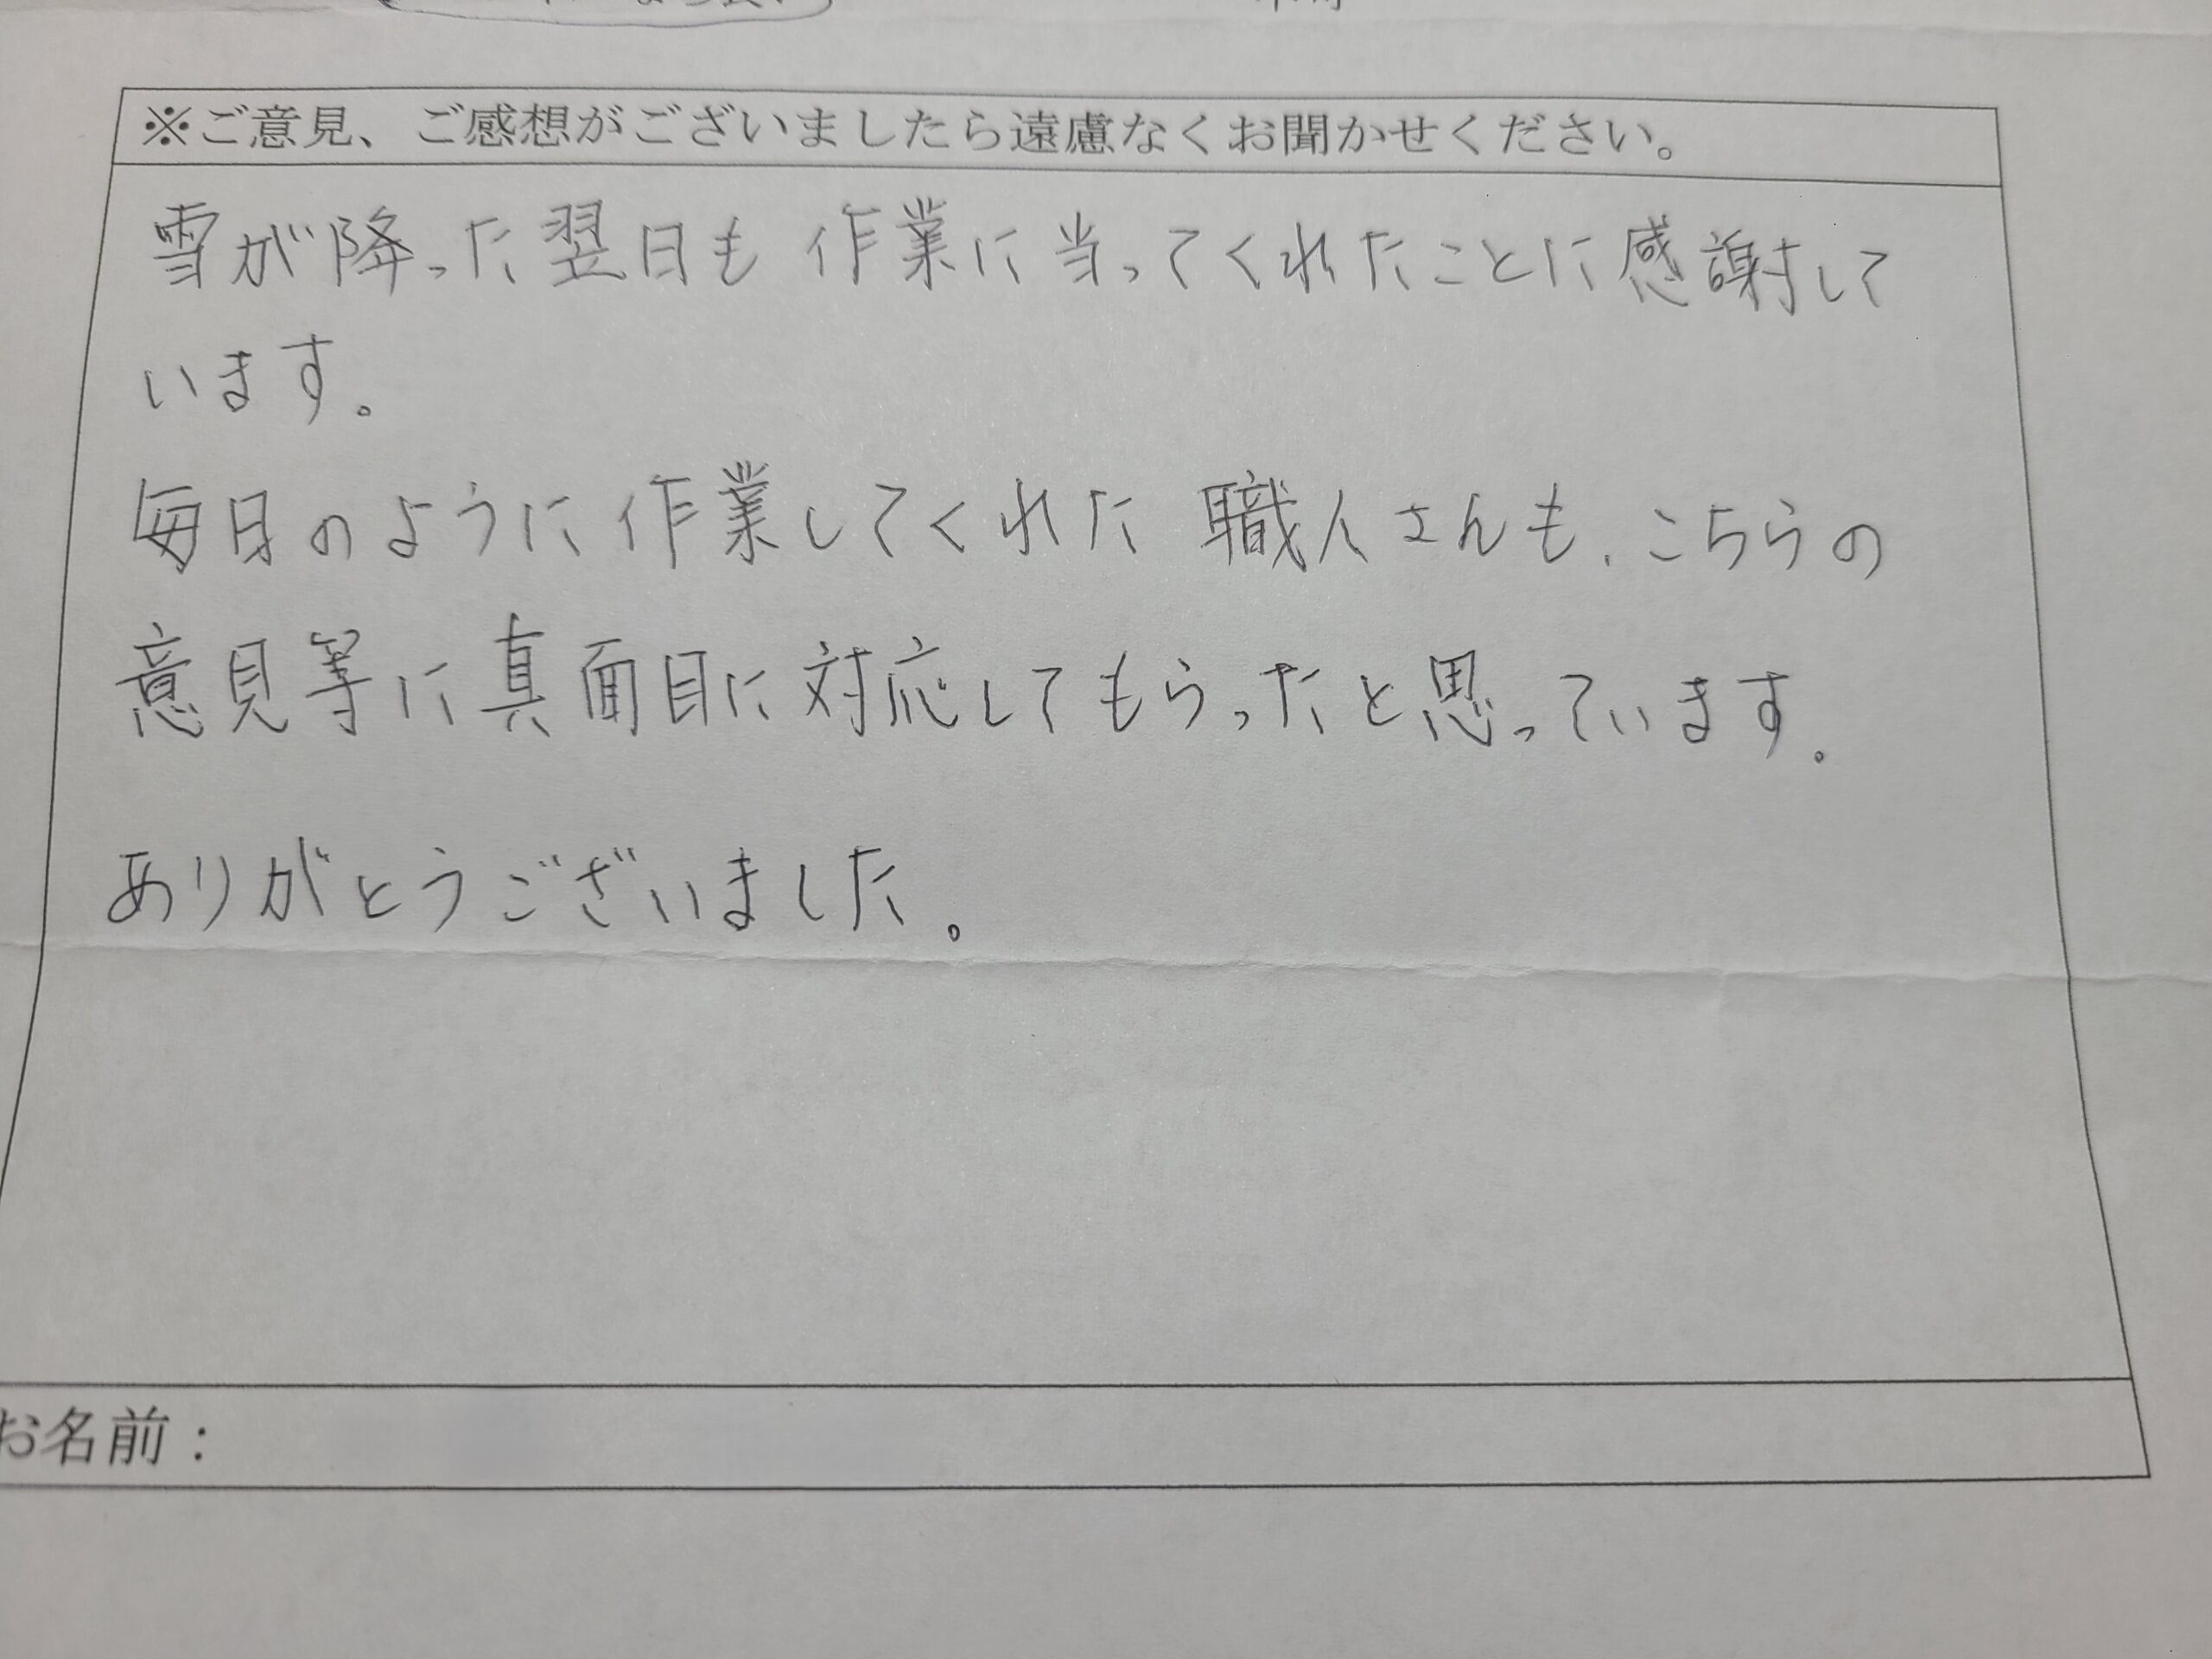 ※ご意見、ご感想がございましたら遠慮なくお聞かせください。
雪が降った翌日も作業に当ってくれたことに感謝して
います。
毎日のように作業してくれた職人さんも、こちらの
意見等に真面目に対応してもらったと思っています。
ありがとうございました。
お名前：